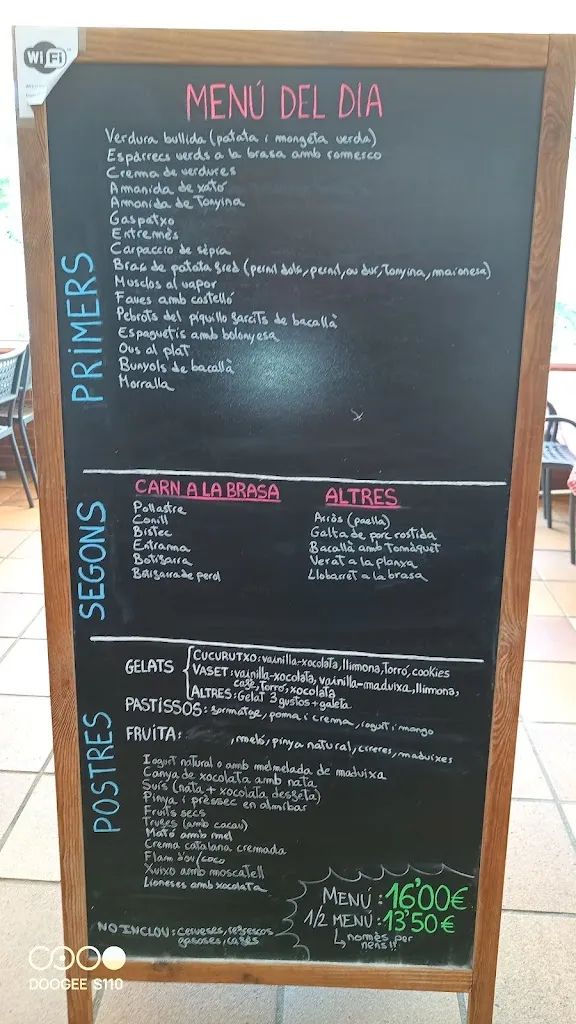 Wi Fi
MENÚ DEL DIA
PRIMERS
Verdura bullida (patata i mongeta verda)
Espàrrecs verds a la brasa amb romesco
Crema de verdures
Amanida de xató
Amanida de Tonyina
Gaspatxo
Entremès
Carpaccio de sèpia
Braç de patata fred (pernil dolç, pernil, ou dur, Tonyina, maionesa)
Musclos al vapor
Faves amb costelló
Pebrots del piquillo farcits de bacallà
Espaguetis amb bolonyesa
Ous al plat
Bunyols de bacallà
Morralla
SEGONS
CARN A LA BRASA
Pollastre
Conill
Bistec
Entranya
Botifarra
Botifarra de perol
ALTRES
Arròs (paella)
Galta de porc rostida
Bacallà amb Tomàquet
Verat a la planxa
Llobarret a la brasa
POSTRES
GELATS
CUCURUTXO: vainilla-xocolata, llimona, Torró, cookies
VASET: vainilla-xocolata, vainilla-maduixa, llimona,
café, Torró, xocolata
ALTRES: Gelat 3 gustos + galeta
PASTISSOS: formatge, poma i crema, iogurt i mango
FRUITA: , meló, pinya natural, cireres, maduixes
Iogurt natural o amb melmelada de maduixa
Canya de xocolata amb nata
Suís (nata + xocolata desfeta)
Pinya i préssec en almíbar
Fruits secs
Trufes (amb cacau)
Mató amb mel
Crema catalana cremada
Flam d'ou/coco
Xuixo amb moscatell
Lioneses amb xocolata
MENÚ: 16'00€
1/2 MENÚ: 13'50€
↳ només per
nens!!
NO INCLOU: cerveses, refrescos
gasoses, cafés
DOOGEE S110